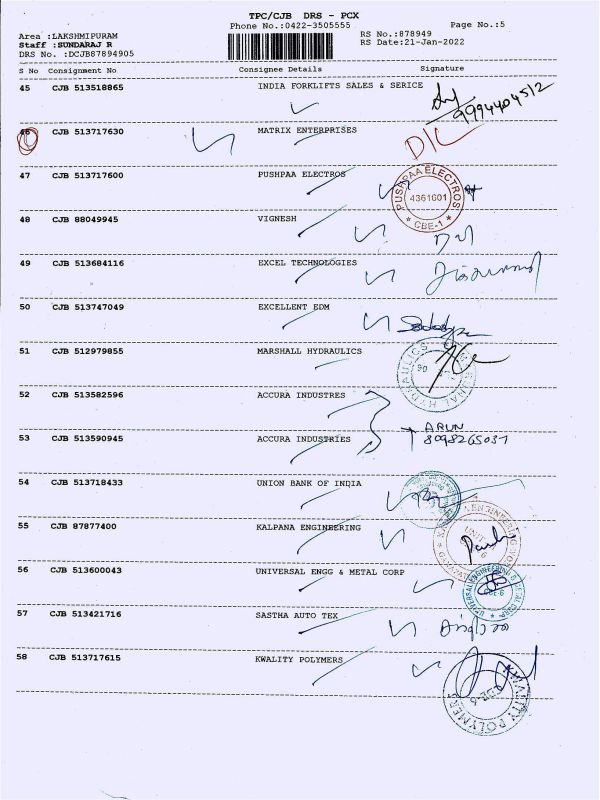 TPC/CJB DRS - PCX
Phone No.:0422-3505555 Page No.:5
Area :LAKSHMIPURAM RS No.:878949
Staff :SUNDARAJ R RS Date:21-Jan-2022
DRS No. :DCJB87894905
S No Consignment No Consignee Details Signature
45 CJB 513518865 INDIA FORKLIFTS SALES & SERICE
9994404512
46 CJB 513717630 MATRIX ENTERPRISES D/L
47 CJB 513717600 PUSHPAA ELECTROS PUSHPAA ELECTROS 4361601 * CBE-1 *
48 CJB 88049945 VIGNESH
49 CJB 513684116 EXCEL TECHNOLOGIES
50 CJB 513747049 EXCELLENT EDM
51 CJB 512979855 MARSHALL HYDRAULICS
52 CJB 513582596 ACCURA INDUSTRES
ARUN
53 CJB 513590945 ACCURA INDUSTRIES 8098265031
54 CJB 513718433 UNION BANK OF INDIA
55 CJB 87877400 KALPANA ENGINEERING
56 CJB 513600043 UNIVERSAL ENGG & METAL CORP
57 CJB 513421716 SASTHA AUTO TEX
58 CJB 513717615 KWALITY POLYMERS KWALITY POLYMERS CBE-6